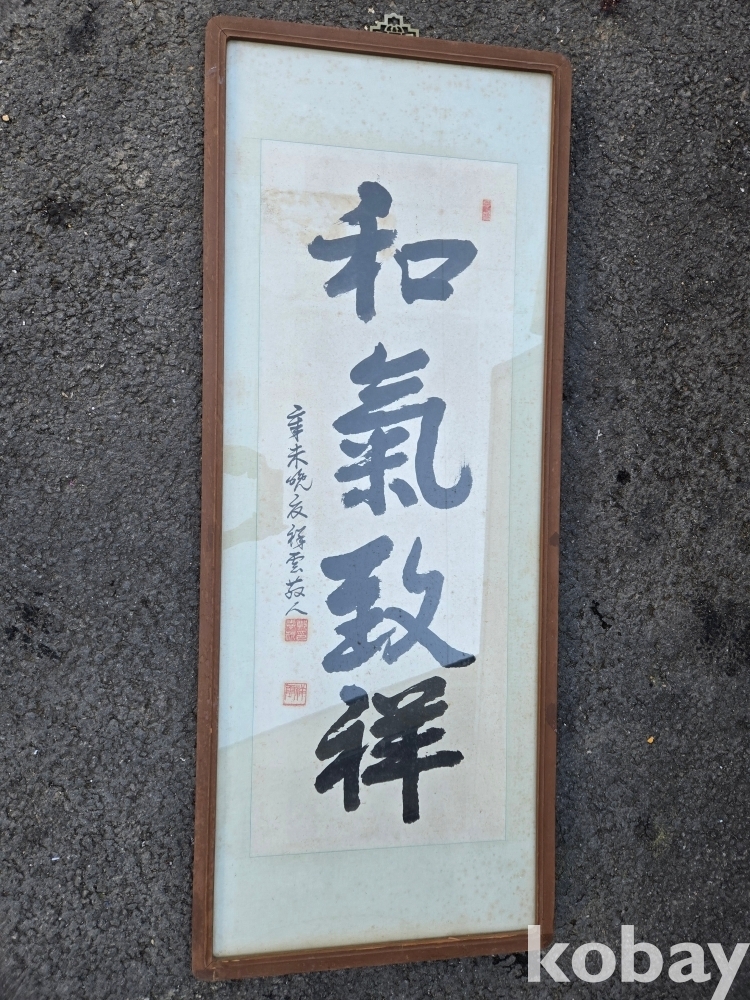 和氣致祥
辛未晩夏祥雲散人
kobay